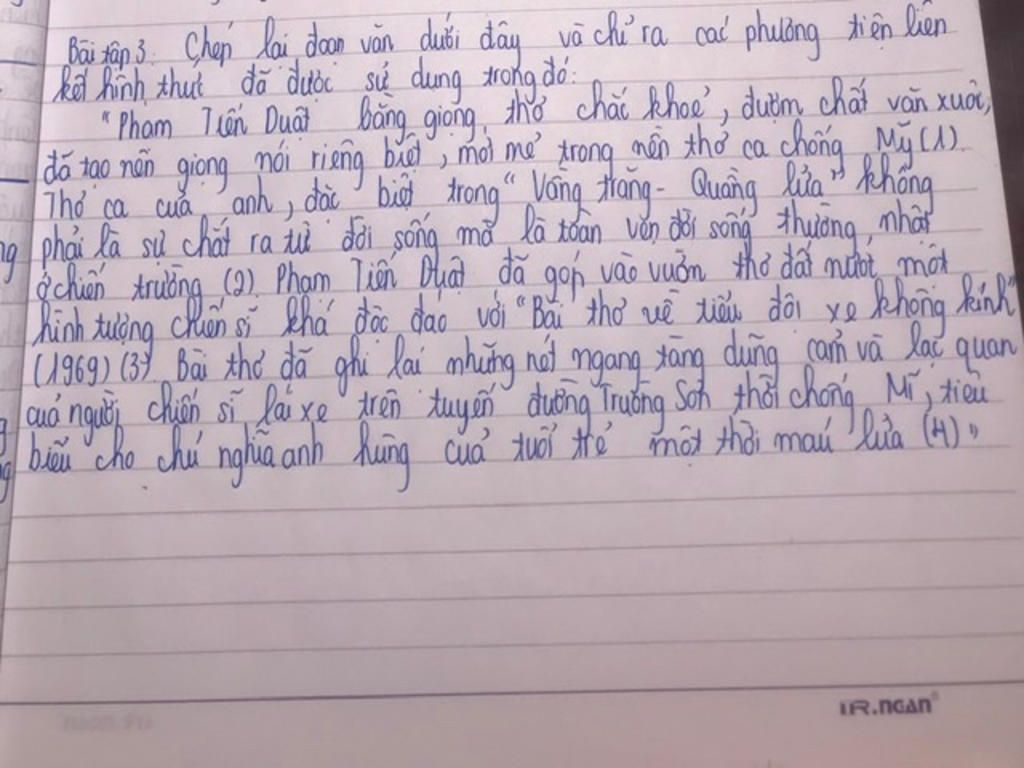 Bài tập 3: Chép lại đoạn văn dưới đây và chỉ ra các phương tiện liên
kết hình thức đã được sử dụng trong đó:
"Phạm Tiến Duật bằng giọng thơ chắc khoẻ, đượm chất văn xuôi,
đã tạo nên giọng nói riêng biệt, mới mẻ trong nền thơ ca chống Mỹ (1).
Thơ ca của anh, đặc biệt trong "Vầng trăng - Quầng lửa" không
phải là sự chắt ra từ đời sống mà là toàn vẹn đời sống thường nhật
ở chiến trường (2) Phạm Tiến Duật đã góp vào vườn thơ đất nước một
hình tượng chiến sĩ khá độc đáo với "Bài thơ về tiểu đội xe không kính"
(1969) (3). Bài thơ đã ghi lại những nét ngang tàng dũng cảm và lạc quan
của người chiến sĩ lái xe trên tuyến đường Trường Sơn thời chống Mĩ, tiêu
biểu cho chủ nghĩa anh hùng của tuổi trẻ một thời máu lửa (4)"